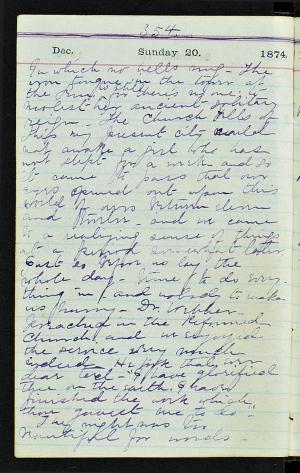 354
Dec. Sunday 20. 1874
In which no bells ring. The
iron tongue in the town of
the King is still for there's no one to
molest her ancient solitary
reign. The Church Bells of
this my present city could
not awake a girl who has
not slept for a week and so
it came to pass that our
eyes opened out upon this
world of ours between eleven
and and we came
to a realizing sense of things
at a period somewhat later
us lay the
whole day. Time to do every-
thing in, and nobody to make
us hurry. Dr.
preached in the Reformed
Church, and we enjoyed
the service very much
indeed. He took that
dear text "I have glorified
thee on the earth, I have
finished the work which
thou gavest me to do."
The night was too
beautiful for words.